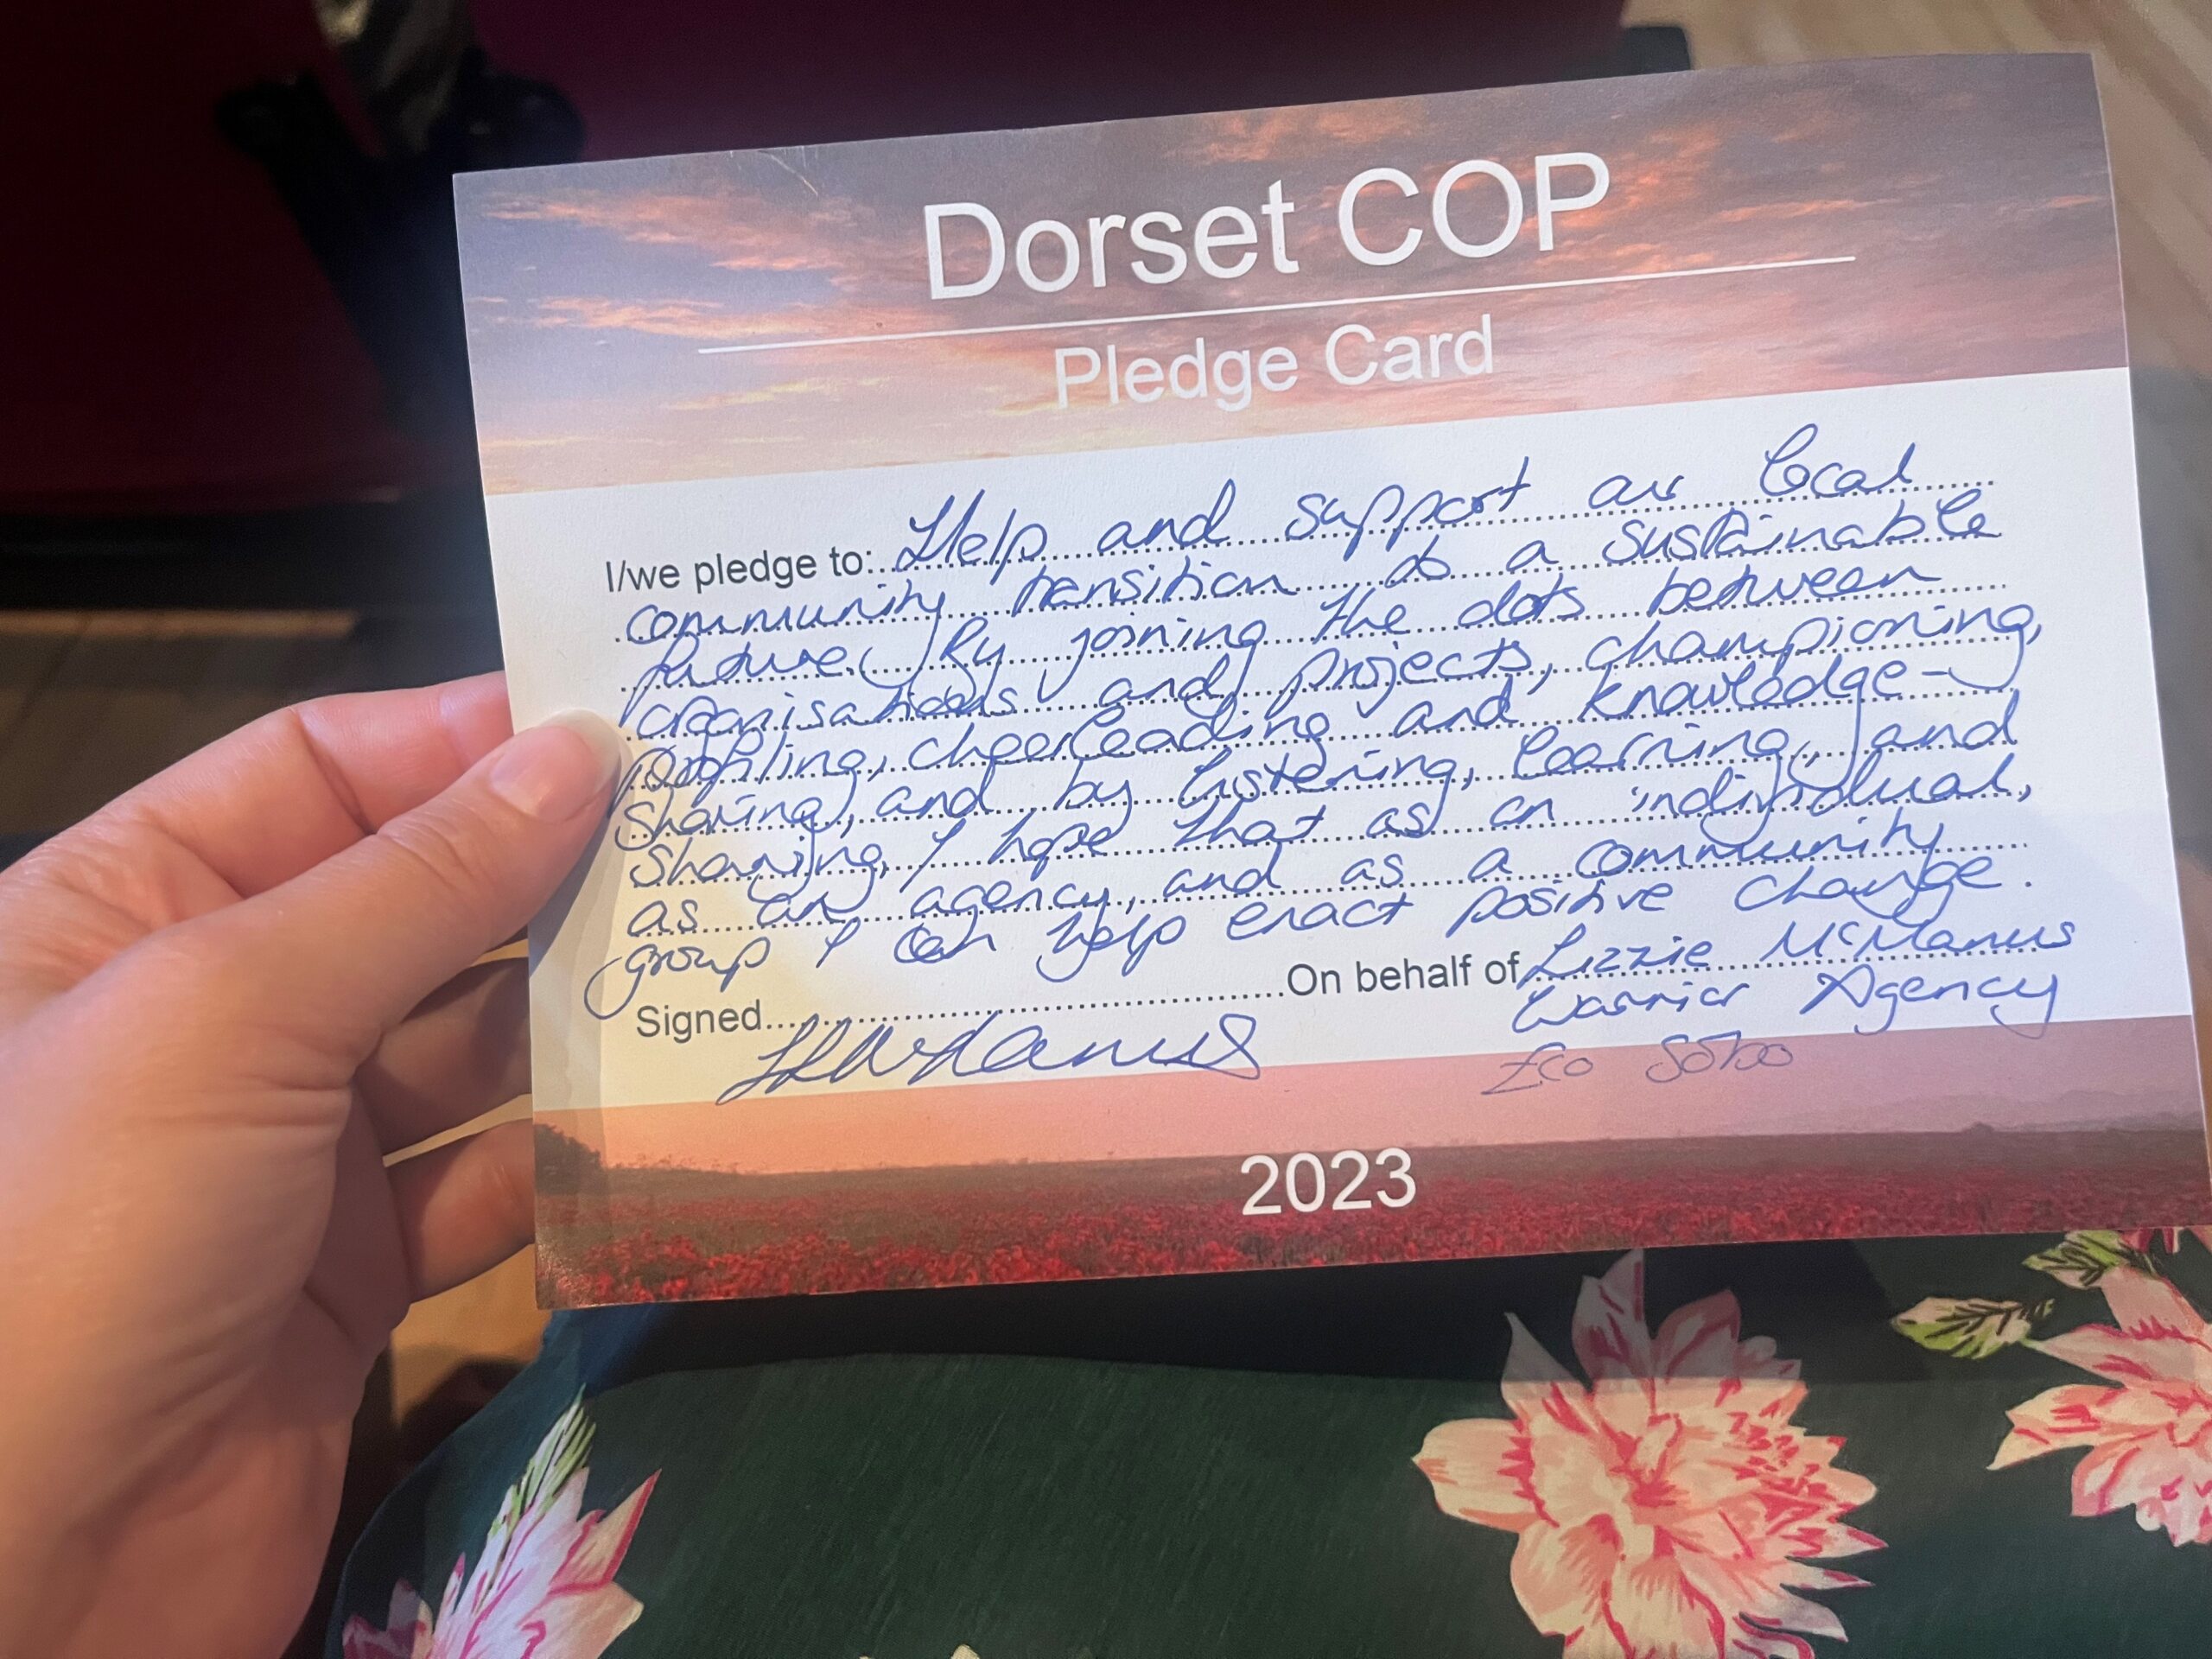 Dorset COP
Pledge Card
I/we pledge to: Help and support our local
community transition to a sustainable
future. By joining the dots between
organisations and projects, championing,
profiling, cheerleading and knowledge-
sharing, and by listening, learning, and
sharing, I hope that as an individual,
as an agency, and as a community
group I can help enact positive change.
Signed On behalf of Lizzie McManus
Warrior Agency
Eco Sobo
2023